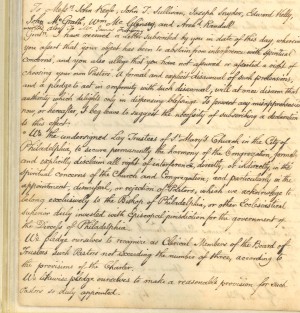 To Messrs John Keefe, John T. Sullivan, Joseph Snyder, Edward Kelly,
John McGrath, Wm. McGlinsey, and Arch. Randall
Gent. I have received a letter subscribed by you in date of this day wherein
you assert that your object has been to abstain from interference with Spiritual
Concerns, and you also allege that you have not assumed or asserted a right of
choosing your own Pastors. A formal and explicit disavowal of such pretensions,
and a pledge to act in conformity with such disavowal, will at once disarm that
authority which delights only in dispensing blessings. To prevent any misapprehension
now or hereafter, I beg leave to suggest the necessity of subscribing a declaration
to this effect:
"We the undersigned Lay Trustees of St. Mary's Church in the City of
Philadelphia, to secure permanently the harmony of the Congregation, formally
and explicitly disclaim all right of interference, directly, or indirectly, in the
Spiritual concerns of the Church and Congregation; and particularly in the
appointment, dismissal, or rejection of Pastors, which we acknowledge to
belong exclusively to the Bishop of Philadelphia, or other Ecclesiastical
superior duly invested with Episcopal jurisdiction for the government of
the Diocess of Philadelphia.
We pledge ourselves to recognize as Clerical Members of the Board of
Trustees such Pastors not exceeding the number of three, according to
the provisions of the Charter.
We likewise pledge ourselves to make a reasonable provision for such
Pastors so duly appointed.